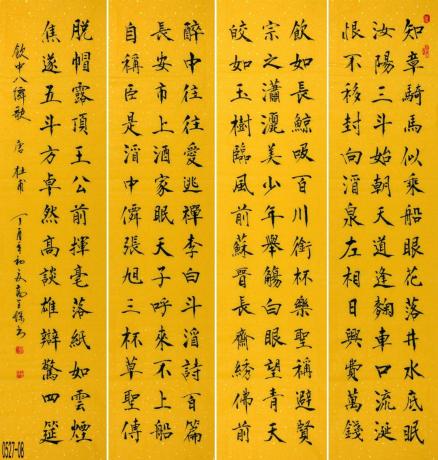 知章騎馬似乘船眼花落井水底眠
汝陽三斗始朝天道逢麴車口流涎
恨不移封向酒泉左相日興費萬錢
飲如長鯨吸百川銜杯樂聖稱避賢
宗之瀟灑美少年舉觴白眼望青天
皎如玉樹臨風前蘇晉長齋綉佛前
醉中往往愛逃禪李白斗酒詩百篇
長安市上酒家眠天子呼來不上船
自稱臣是酒中僊張旭三杯草聖傳
脫帽露頂王公前揮毫落紙如雲煙
焦遂五斗方卓然高談雄辯驚四筵
飲中八僊歌 唐 杜甫 丁酉年初夏
0527-08